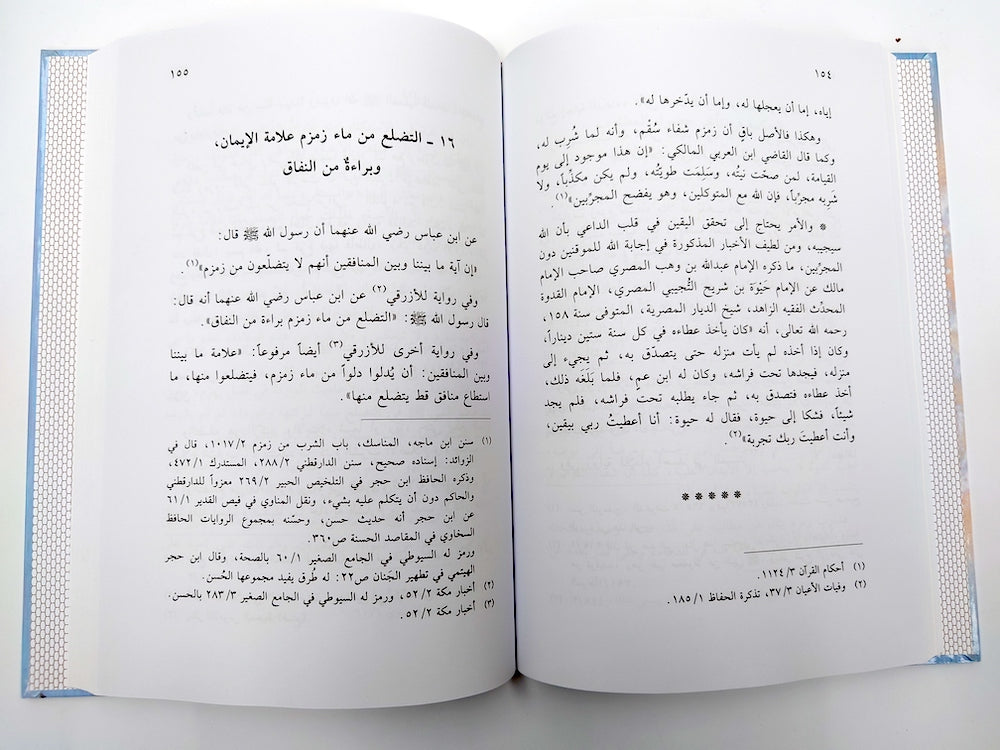 ١٥٤
إياه، إما أن يعجلها له، وإما أن يدّخرها له».
وهكذا فالأصل باقٍ أن زمزم شفاء سُقْم، وأنه لما شُرِب له،
وكما قال القاضي ابن العربي المالكي: «إن هذا موجود إلى يوم
القيامة، لمن صحّت نيتُه، وسَلِمَت طويتُه، ولم يكن مكذّباً، ولا
شَرِبه مجرّباً، فإن الله مع المتوكلين، وهو يفضح المجرّبين»(١).
* والأمر يحتاج إلى تحقق اليقين في قلب الداعي بأن الله
سيجيبه، ومن لطيف الأخبار المذكورة في إجابة الله للموقنين دون
المجرّبين، ما ذكره الإمام عبدالله بن وهب المصري صاحب الإمام
مالك عن الإمام حَيْوَة بن شريح التُّجيبي المصري، الإمام القدوة
المحدّث الفقيه الزاهد، شيخ الديار المصرية، المتوفى سنة ١٥٨،
رحمه الله تعالى، أنه «كان يأخذ عطاءه في كل سنة ستين ديناراً،
وكان إذا أخذه لم يأت منزله حتى يتصدّق به، ثم يجيء إلى
منزله، فيجدها تحت فراشه، وكان له ابن عم، فلما بَلَغَه ذلك،
أخذ عطاءه فتصدق به، ثم جاء يطلبه تحت فراشه، فلم يجد
شيئاً، فشكا إلى حيوة، فقال له حيوة: أنا أعطيتُ ربي بيقين،
وأنت أعطيتَ ربك تجربة»(٢).
* * * * *
(١) أحكام القرآن ١١٢٤/٣.
(٢) وفيات الأعيان ٣٧/٣، تذكرة الحفاظ ١٨٥/١.
١٥٥
١٦ ـ التضلع من ماء زمزم علامة الإيمان،
وبراءةٌ من النفاق
عن ابن عباس رضي الله عنهما أن رسول الله ﷺ قال:
«إن آية ما بيننا وبين المنافقين أنهم لا يتضلّعون من زمزم»(١).
وفي رواية للأزرقي(٢) عن ابن عباس رضي الله عنهما أنه قال:
قال رسول الله ﷺ: «التضلع من ماء زمزم براءة من النفاق».
وفي رواية أخرى للأزرقي(٣) أيضاً مرفوعاً: «علامة ما بيننا
وبين المنافقين: أن يُدلوا دلواً من ماء زمزم، فيتضلعوا منها، ما
استطاع منافق قط يتضلع منها».
(١) سنن ابن ماجه، المناسك، باب الشرب من زمزم ١٠١٧/٢، قال في
الزوائد: إسناده صحيح، سنن الدارقطني ٢٨٨/٢، المستدرك ٤٧٢/١،
وذكره الحافظ ابن حجر في التلخيص الحبير ٢٦٩/٢ معزواً للدارقطني
والحاكم دون أن يتكلم عليه بشيء، ونقل المناوي في فيض القدير ٦١/١
عن ابن حجر أنه حديث حسن، وحسّنه بمجموع الروايات الحافظ
السخاوي في المقاصد الحسنة ص٣٦٠.
ورمز له السيوطي في الجامع الصغير ٦٠/١ بالصحة، وقال ابن حجر
الهيتمي في تطهير الجَنان ص٢٢: له طُرق يفيد مجموعها الحُسن.
(٢) أخبار مكة ٥٢/٢، ورمز له السيوطي في الجامع الصغير ٢٨٣/٣ بالحسن.
(٣) أخبار مكة ٥٢/٢.